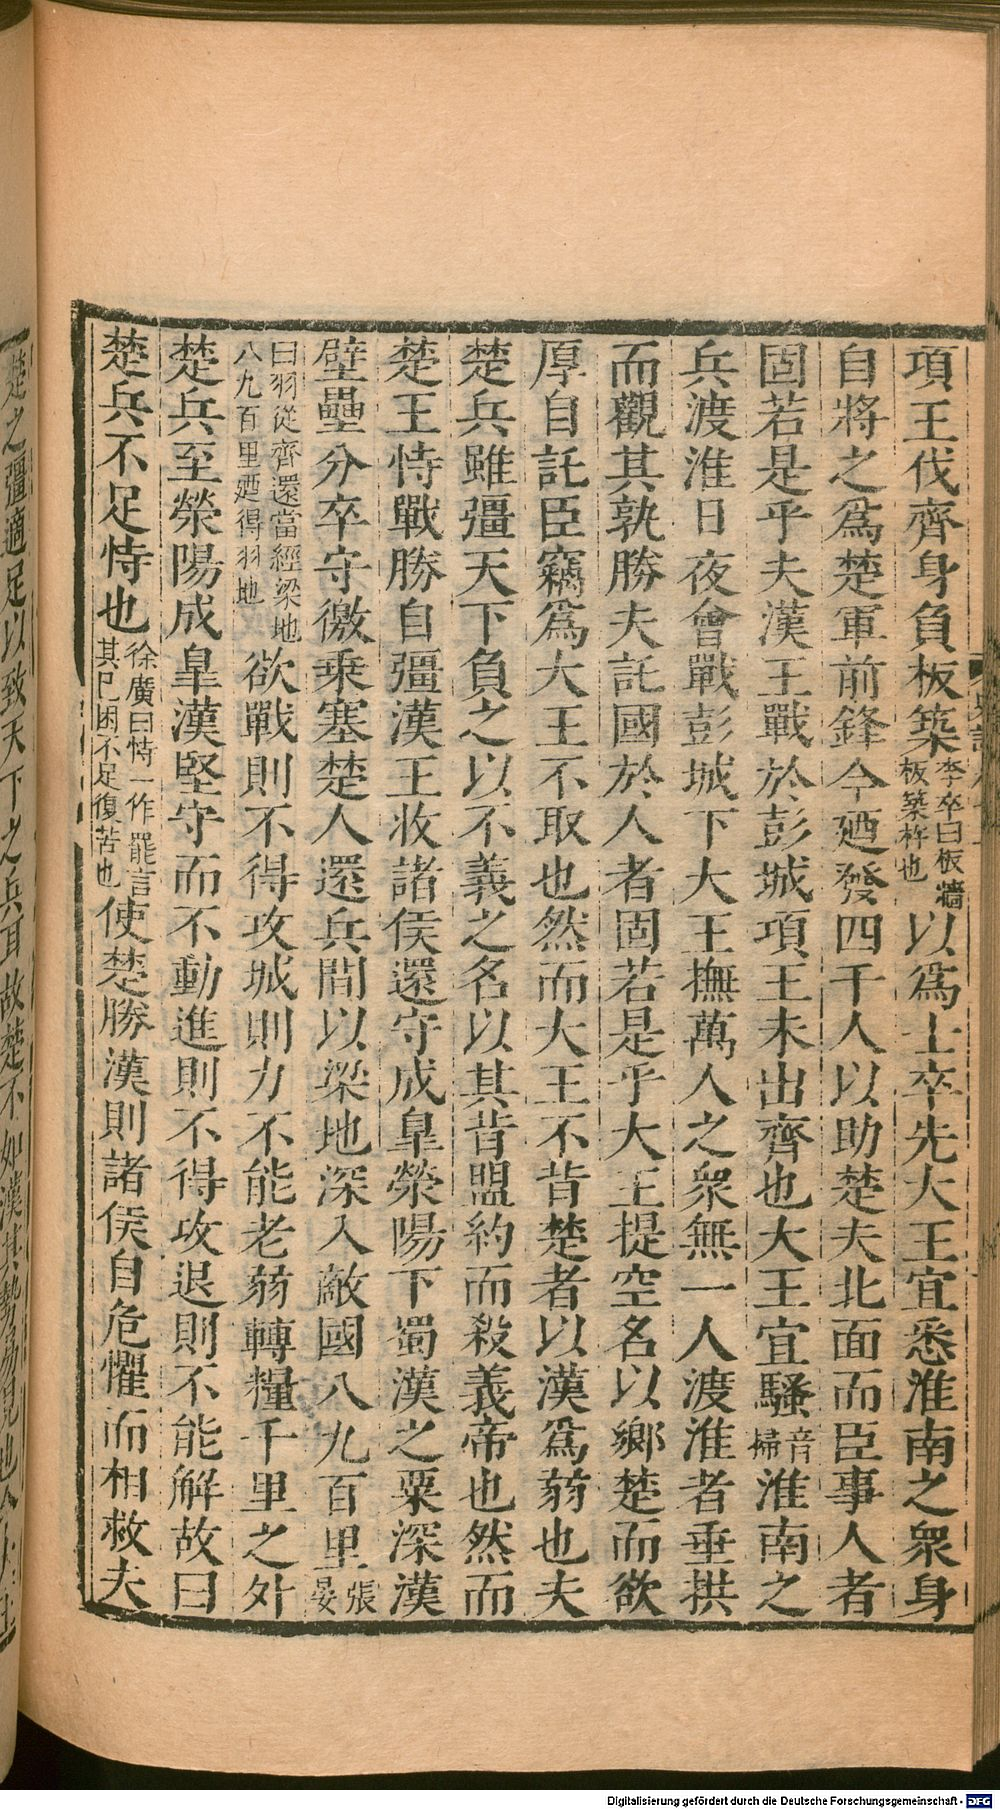 項王伐齊身負板築李卒曰板牆板築杵也以爲士卒先大王宜悉淮南之衆身
自將之爲楚軍前鋒今廼發四千人以助楚夫北面而臣事人者
固若是乎夫漢王戰於彭城項王未出齊也大王宜騷音掃淮南之
兵渡淮日夜會戰彭城下大王撫萬人之衆無一人渡淮者垂拱
而觀其孰勝夫託國於人者固若是乎大王提空名以鄉楚而欲
厚自託臣竊爲大王不取也然而大王不背楚者以漢爲弱也夫
楚兵雖彊天下負之以不義之名以其背盟約而殺義帝也然而
楚王恃戰勝自彊漢王收諸侯還守成皐滎陽下蜀漢之粟深漢
壁壘分卒守徼乘塞楚人還兵間以梁地深入敵國八九百里張晏
曰羽從齊還當經梁地八九百里廼得羽地欲戰則不得攻城則力不能老弱轉糧千里之外
楚兵至滎陽成皐漢堅守而不動進則不得攻退則不能解故曰
楚兵不足恃也徐廣曰恃一作罷言其已困不足復苦也使楚勝漢則諸侯自危懼而相救夫
楚之彊適足以致天下之兵耳故楚不如漢其勢易見也今大王
Digitalisierung gefördert durch die Deutsche Forschungsgemeinschaft - DFG